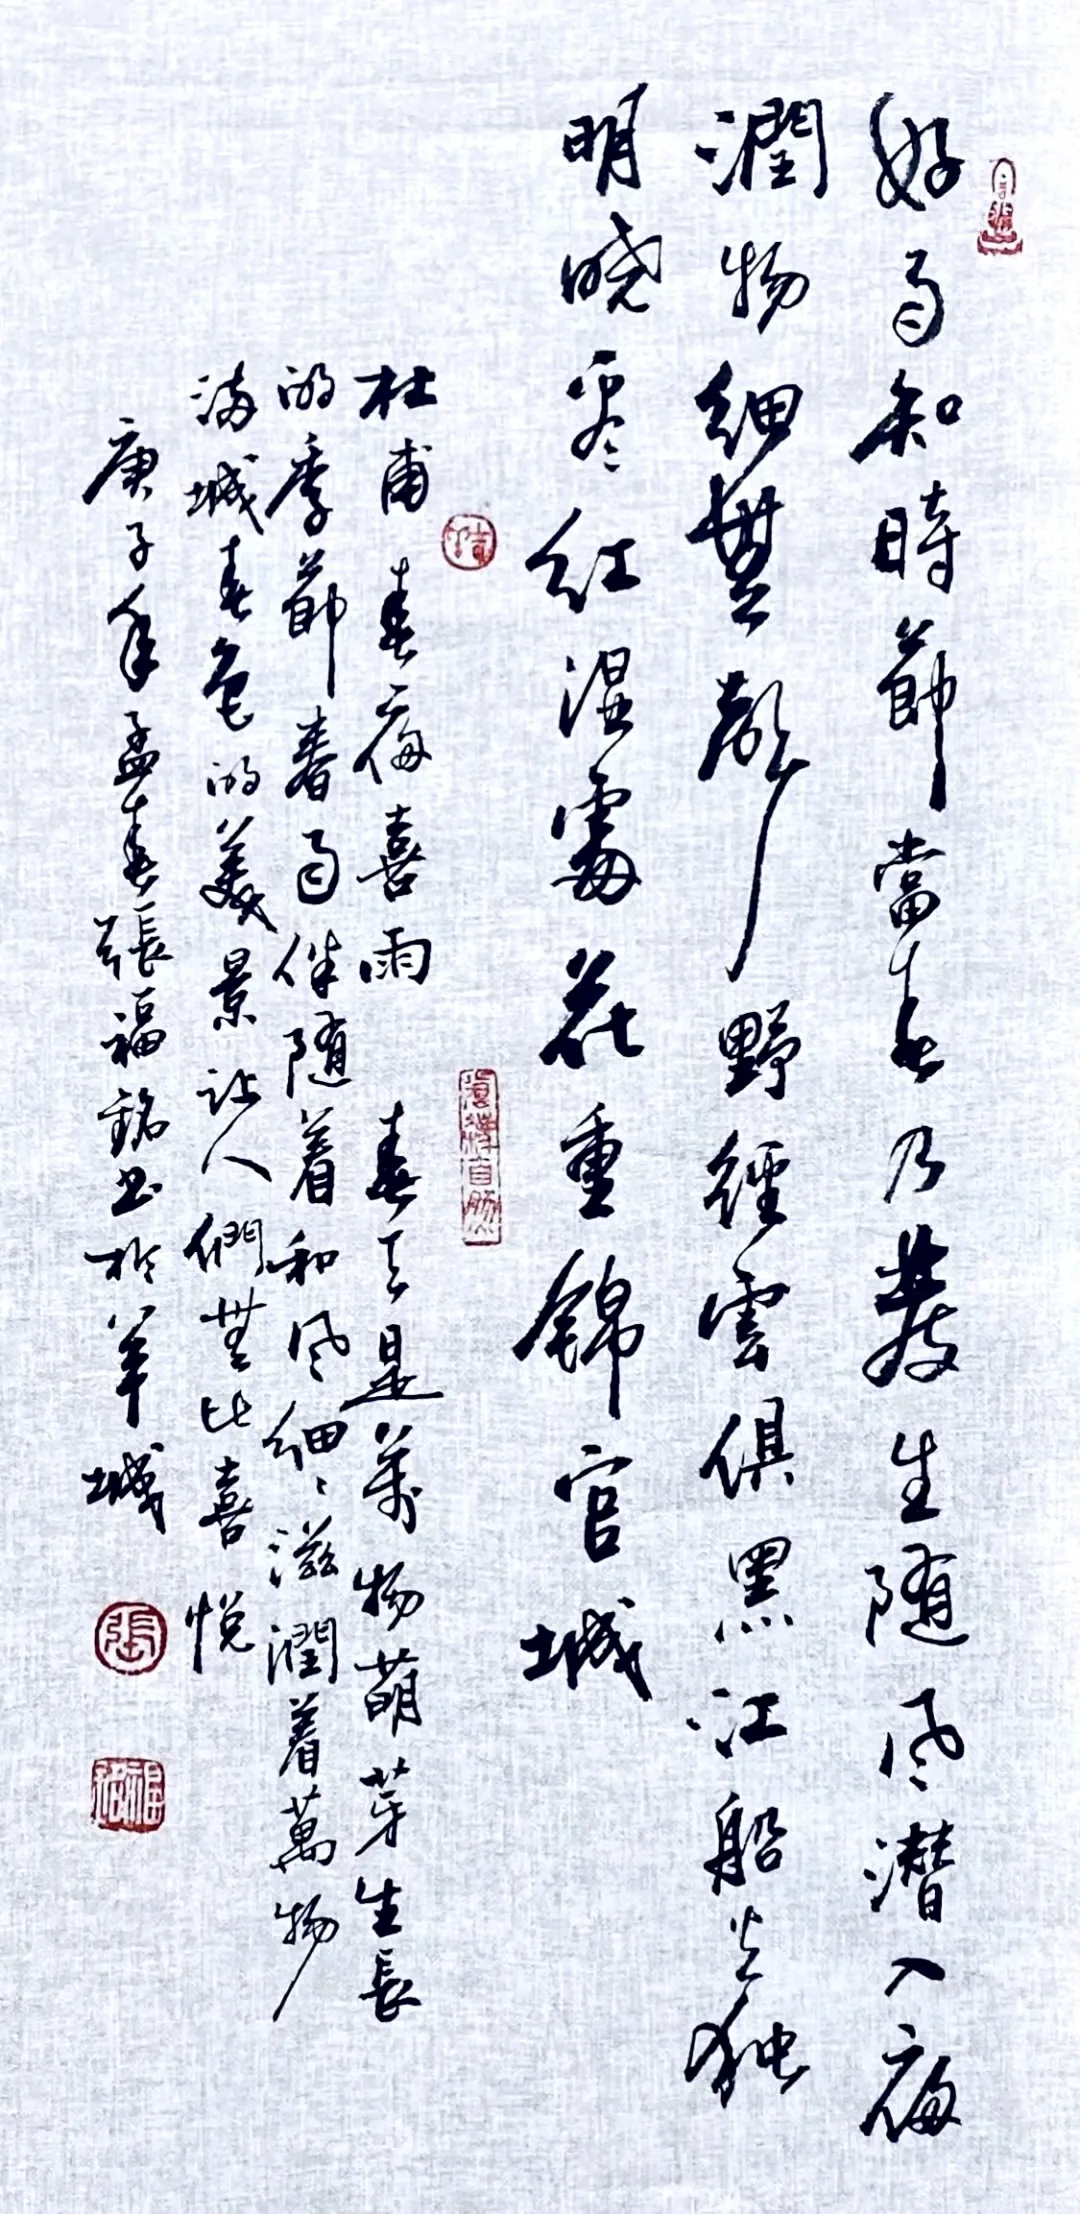 好雨知時節當春乃發生随风潜入夜
潤物细無聲野径雲俱黑江船火独
明晓看红湿處花重錦官城
杜甫 春夜喜雨 春天是萬物萌芽生長
的季節春雨伴随着和风细々滋潤着萬物
满城春色的美景让人們無比喜悦
庚子年孟春張福銘书於羊城
張